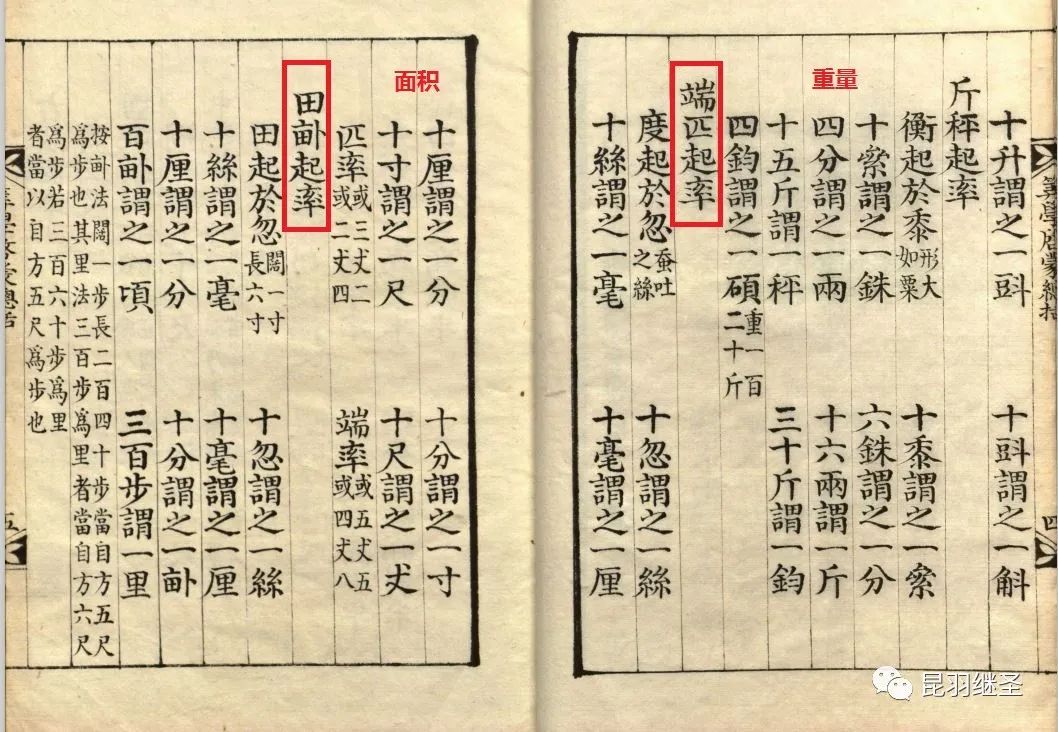 重量
十升謂之一㪷 十㪷謂之一斛
斤秤起率
衡起於黍 形大如粟 十黍謂之一絫
十絫謂之一銖 六銖謂之一分
四分謂之一兩 十六兩謂一斤
十五斤謂一秤 三十斤謂一鈞
四鈞謂之一碩 重一百二十斤
端匹起率
度起於忽 蚕吐之絲 十忽謂之一絲
十絲謂之一毫 十毫謂之一厘
面积
十厘謂之一分 十分謂之一寸
十寸謂之一尺 十尺謂之一丈
匹率 或三丈二或二丈四 端率 或五丈五或四丈八
田畆起率
田起於忽 闊一寸長六寸 十忽謂之一絲
十絲謂之一毫 十毫謂之一厘
十厘謂之一分 十分謂之一畆
百畆謂之一頃 三百步謂一里
按畆法闊一步長二百四十步當自方五尺
爲步也其里法三百步爲里者當自方六尺
爲步若三百六十步爲里
者當以自方五尺爲步也
昆羽继圣